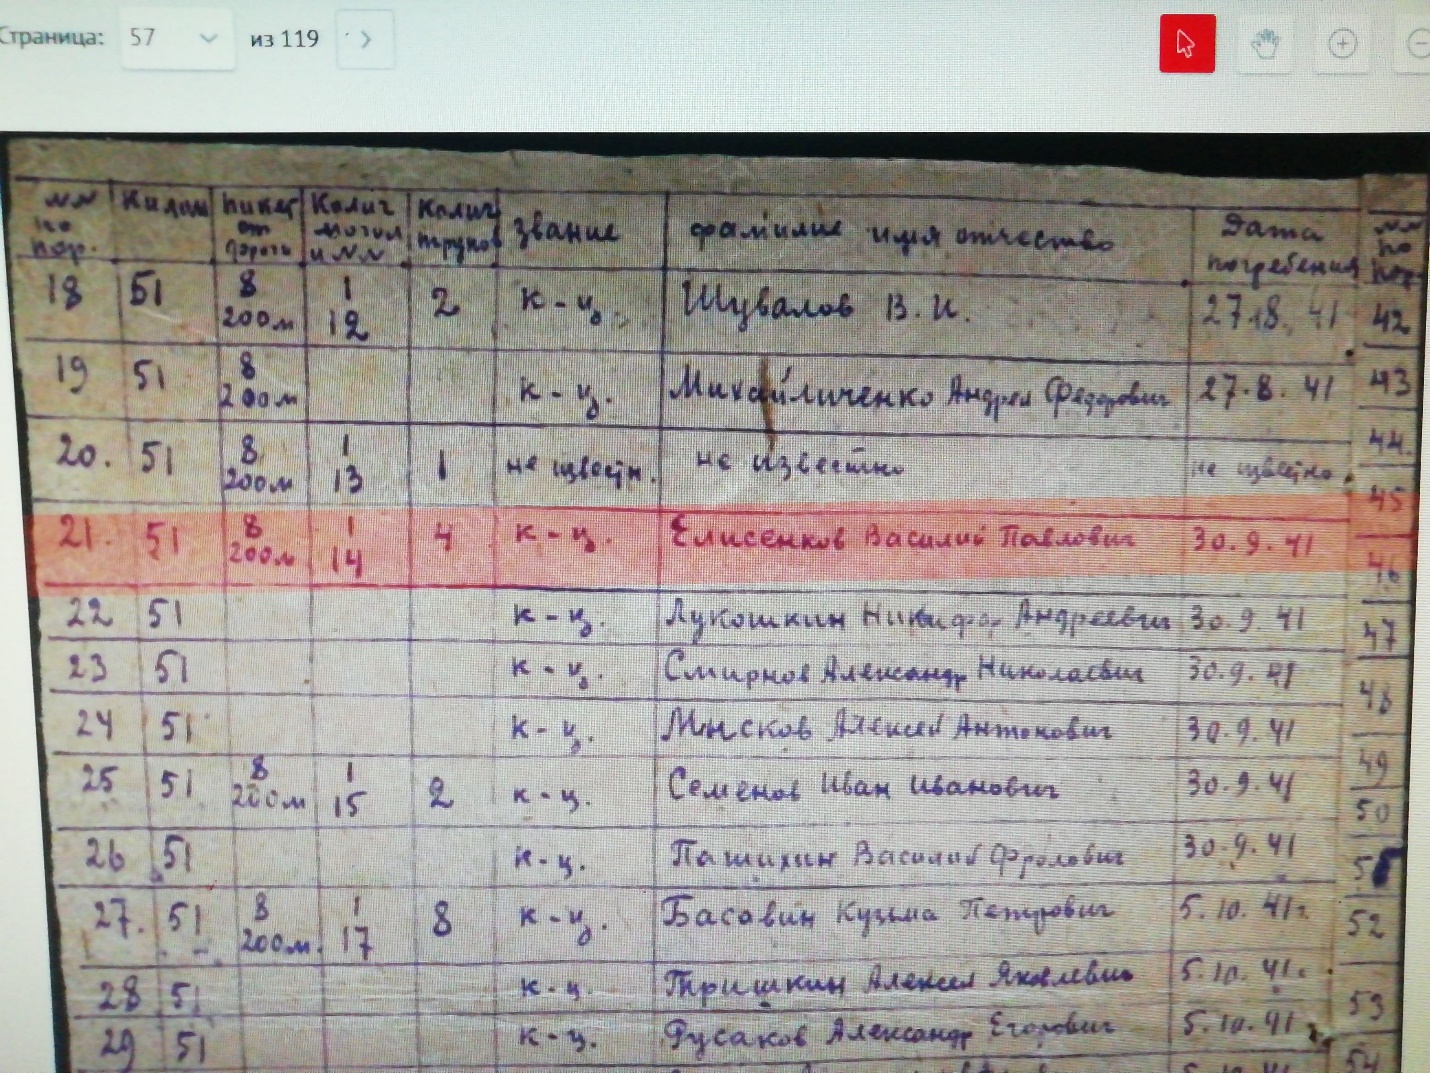 Страница: 57 из 119
№№ по пор. Килом Пикет от дороги Колич могил и №№ Колич трупов звание фамилие имя отчество Дата погребения №№ по пор.
18 51 8 200м 1 12 2 к-ц. Шувалов В. И. 27.8. 41 42
19 51 8 200м к-ц. Михайличенко Андрей Федорович 27.8.41 43
20. 51 8 200м 1 13 1 не извест. не известно не известно 44.
45
21. 51 8 200м 1 14 4 к-ц. Елисенков Василий Павлович 30.9.41 46
22 51 к-ц. Лукошкин Никифор Андреевич 30.9.41 47
23 51 к-ц. Смирнов Александр Николаевич 30.9.41 48
24 51 к-ц. Мысков Алексей Антонович 30.9.41 49
25 51 8 200м 1 15 2 к-ц. Семенов Иван Иванович 30.9.41 50
26 51 к-ц. Пашихин Василий Фролович 30.9.41
27. 51 8 200м. 1 17 8 к-ц. Басовин Кузьма Петрович 5.10.41г. 52
28 51 к-ц. Тришкин Алексей Яковлевич 5.10.41г 53
29 51 к-ц. Русаков Александр Егорович 5.10.41г 54